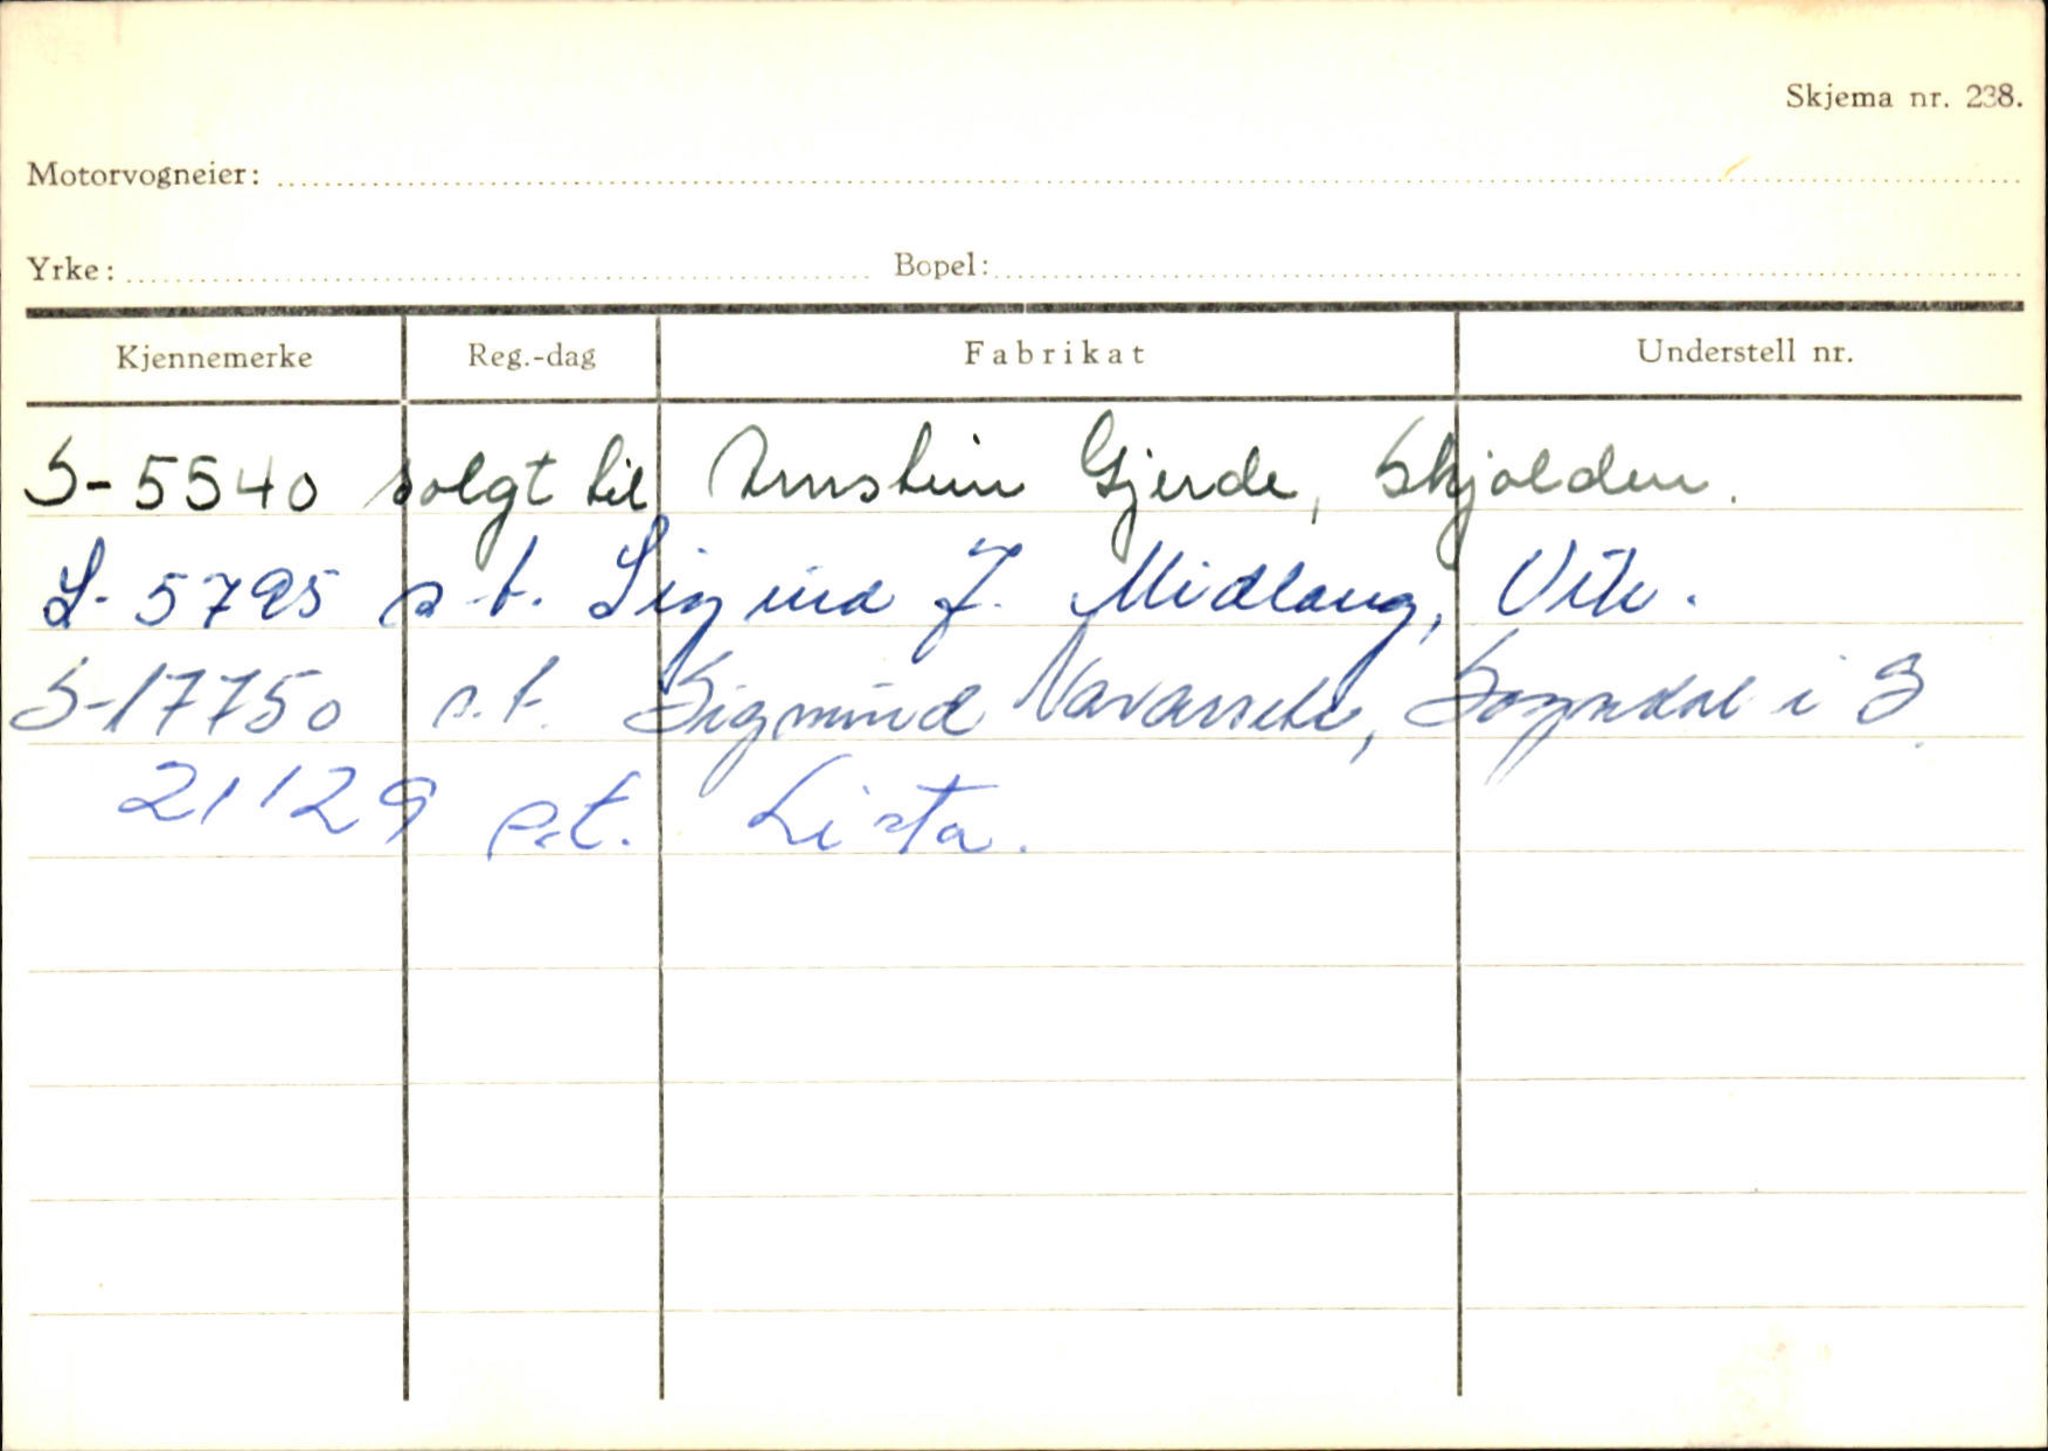 Skjema nr. 238.
Motorvogneier:
Yrke: Bopel:
Kjennemerke Reg.-dag Fabrikat Understell nr.
S-5540 solgt til Arnstein Gjerde, Skjolden.
S-5795 s.t. Sigurd J. Midlang, Vik.
S-17750 s.t. Sigmund Navarsete, Sogndal i S.
21129 s.t. Lista.